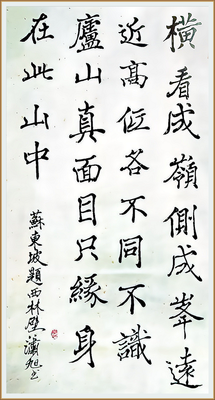 橫看成嶺側成峯遠
近高低各不同不識
廬山真面目只緣身
在此山中
蘇東坡題西林壁